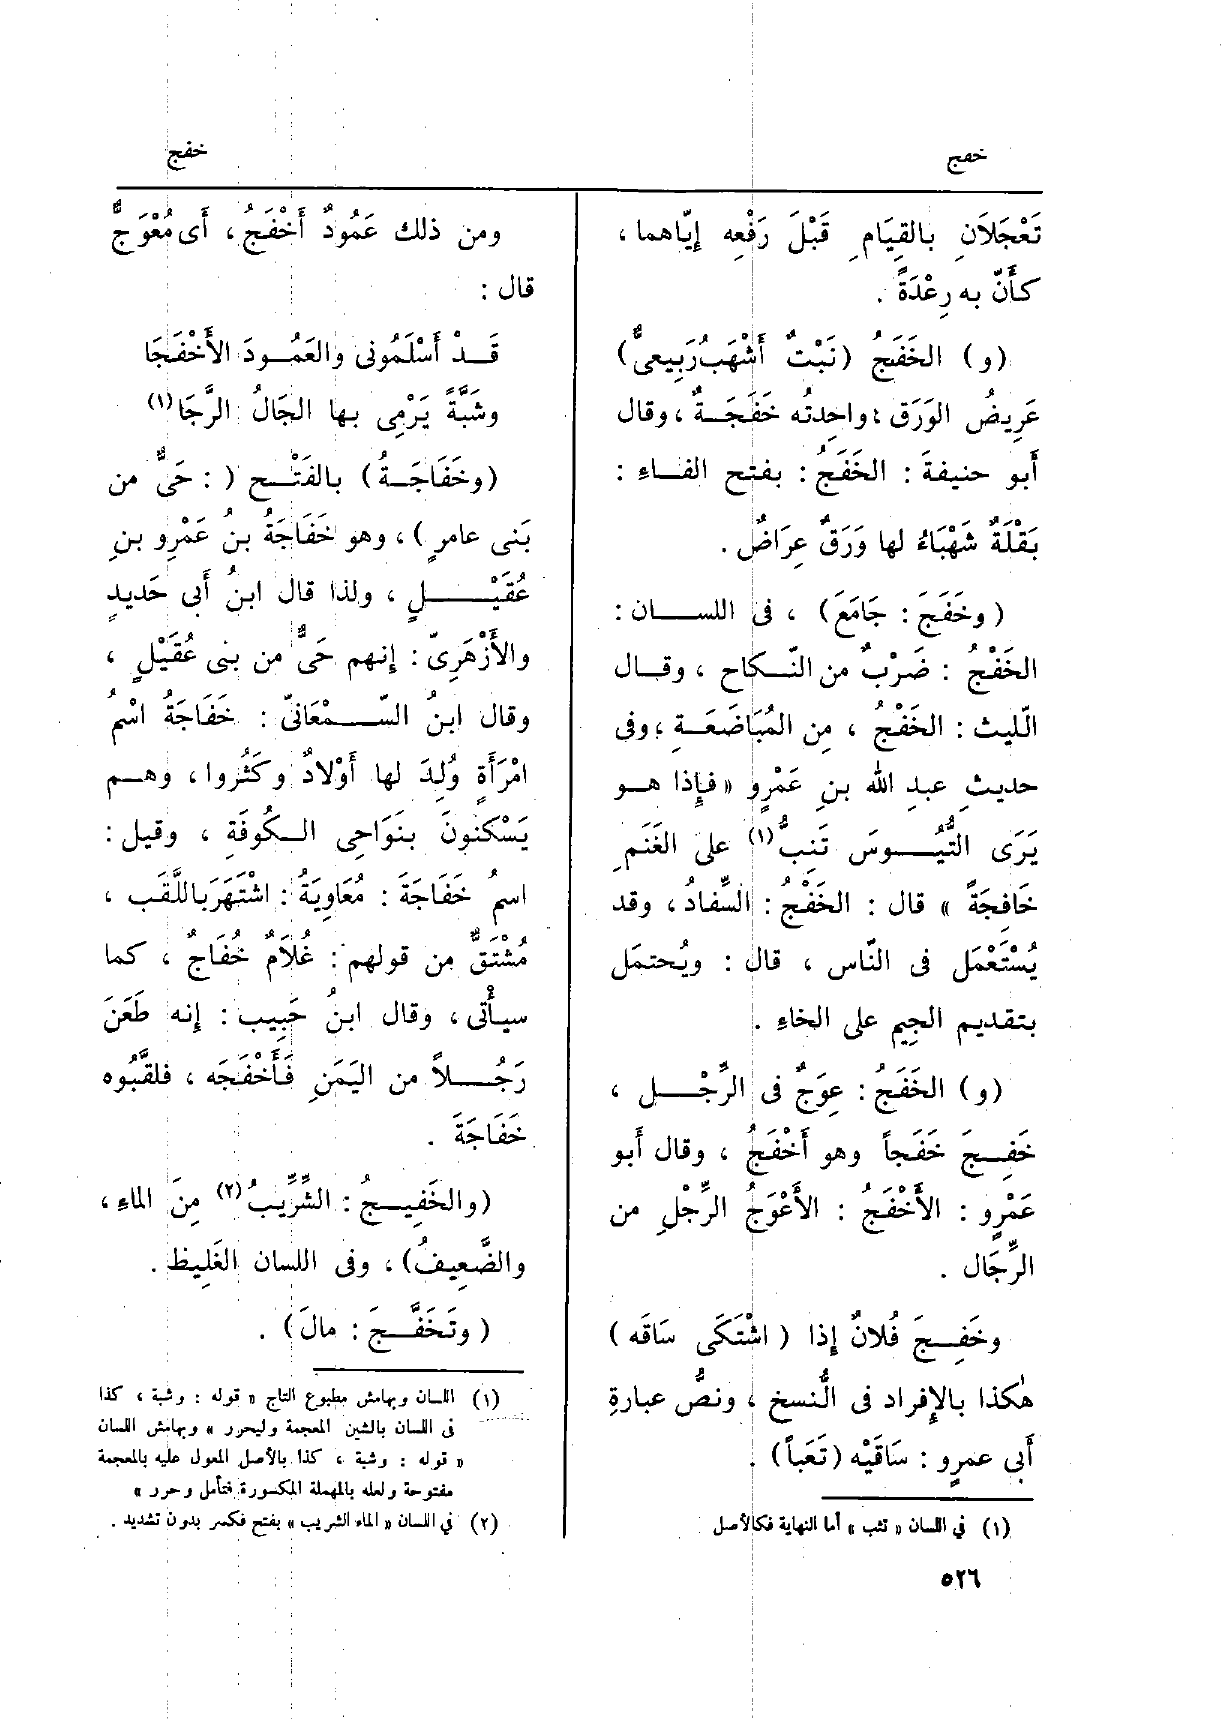 خفج
خفج
تَعْجَلاَنِ بالقِيَامِ قَبْلَ رَفْعِه إيّاهما ،
كأَنّ به رِعْدَةً .
(و) الخَفَجُ (نَبْتٌ أَشْهَبُ رَبِيعىٌّ)
عَرِيضُ الوَرَق ، واحِدتُه خَفَجَةٌ ، وقال
أَبو حنيفةَ : الخَفَجُ : بفتح الفاء :
بَقْلَةٌ شَهْبَاءُ لها وَرَقٌ عِرَاضٌ .
(وخَفَجَ : جَامَعَ) ، فى اللسان :
الخَفْجُ : ضَرْبٌ من النّكاح ، وقال
الّليث : الخَفْجُ ، مِن المُبَاضَعَةِ ، وفى
حديثِ عبدِ الله بنِ عَمْرٍو « فإِذا هو
يَرَى التُّيُوسَ تَنِبُّ (١) على الغَنَمِ
خَافِجَةً » قال : الخَفْجُ : السِّفادُ ، وقد
يُسْتَعْمَل فى النّاس ، قال : ويُحتمَل
بتقديم الجِيم على الخاءِ .
(و) الخَفَجُ : عِوَجٌ فى الرِّجْلِ ،
خَفِجَ خَفَجاً وهو أَخْفَجُ ، وقال أَبو
عَمْرٍو : الأَخْفَجُ : الأَعْوَجُ الرِّجْلِ من
الرِّجَال .
وخَفِجَ فُلانٌ إذا ( اشْتَكَى سَاقَه )
هٰكذا بالإِفراد فى النُّسخ ، ونصُّ عبارةِ
أَبى عمرٍو : سَاقَيْه (تَعَباً) .
(١) في اللسان « تثب » أما النهاية فكالأصل
ومن ذلك عَمُودٌ أَخْفَجُ ، أَى مُعْوَجٌّ
قال :
قَدْ أَسْلَمُونى والعَمُودَ الأَخْفَجَا
وشَبَّةً يَرْمِى بها الجَالُ الرَّجَا (١)
(وخَفَاجَةُ) بالفَتْح ( : حَىٌّ من
بَنى عامرٍ ) ، وهو خَفَاجَةُ بنُ عَمْرِو بنِ
عُقَيْلٍ ، ولذا قال ابنُ أَبى حَديدٍ
والأَزْهَرِىّ : إنهم حَىٌّ من بنى عُقَيْلٍ ،
وقال ابنُ السَّمْعَانىّ : خَفَاجَةُ اسْمُ
امْرَأَةٍ وُلِدَ لها أَوْلادٌ وكَثُروا ، وهم
يَسْكنونَ بنَوَاحِى الكُوفَةِ ، وقيل :
اسمُ خَفَاجَةَ : مُعَاوِيَةُ : اشْتَهَرَ باللَّقَب ،
مُشْتَقٌّ من قولهم : غُلاَمٌ خُفَاجٌ ، كما
سيأْتى ، وقال ابنُ حَبِيب : إنه طَعَنَ
رَجُلاً من اليَمَنِ فَأَخْفَجَه ، فلقَّبُوه
خَفَاجَةَ .
(والخَفِيجُ : الشَّرِّيبُ (٢) مِنَ الماءِ ،
والضَّعِيفُ) ، وفى اللسان الغَلِيظ .
( وتَخَفَّجَ : مالَ ) .
(١) اللسان وبهامش مطبوع التاج « قوله : وشبة ، كذا
فى اللسان بالشين المعجمة وليحرر » وبهامش اللسان
« قوله : وشبة ، كذا بالأصل المعول عليه بالمعجمة
مفتوحة ولعله بالمهملة المكسورة فتأمل وحرر »
(٢) في اللسان « الماء الشريب » بفتح فكسر بدون تشديد .
٥٢٦